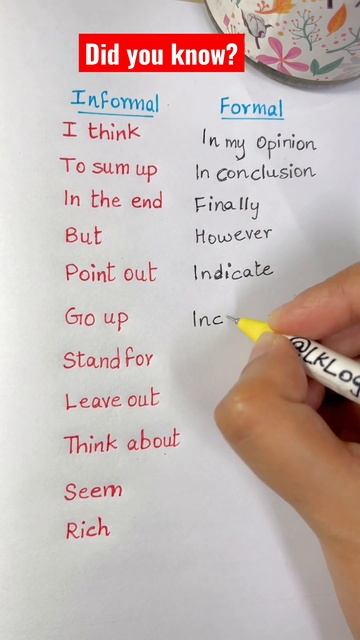 Did you know?
Informal Formal
I think In my Opinion
To sum up In conclusion
In the end Finally
But However
Point out Indicate
Go up Inc
Stand for
Leave out
Think about
Seem
Rich